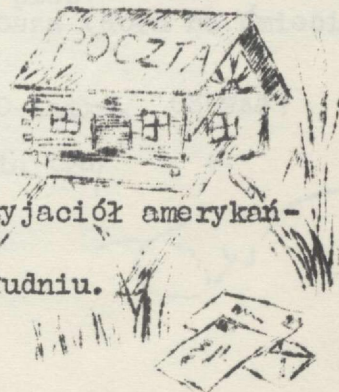 POCZTA
yjaciół amerykań-
udniu.